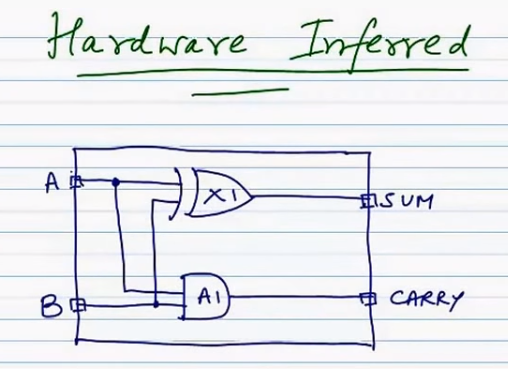 Hardware Inferred
A
X1
SUM
B
A1
CARRY